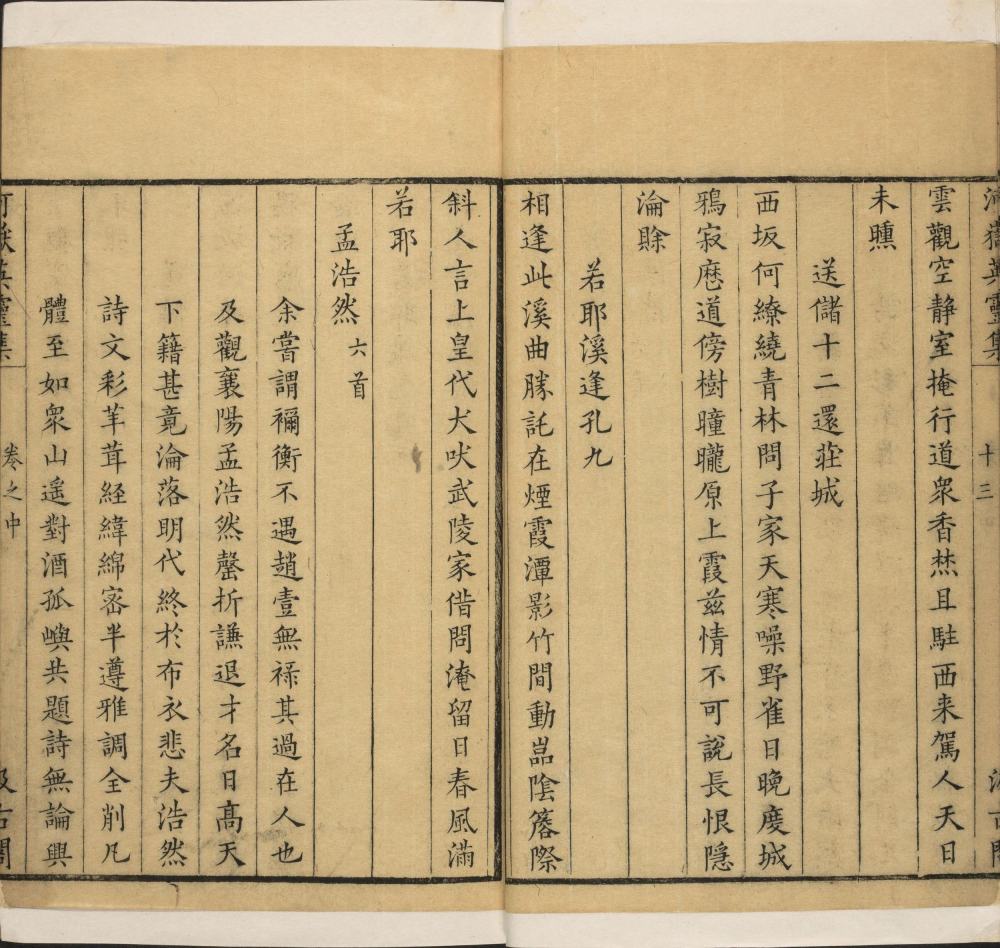 河嶽英靈集 十三
雲觀空静室掩行道眾香焚且駐西来駕人天日
未曛
送儲十二還莊城
西坂何繚繞青林問子家天寒噪野雀日晚度城
鴉寂歴道傍樹曈曨原上霞兹情不可說長恨隠
淪賖
若耶溪逢孔九
相逢此溪曲勝託在煙霞潭影竹間動嵓陰簷際
斜人言上皇代犬吠武陵家借問淹留日春風滿
若耶
孟浩然六首
余嘗謂禰衡不遇趙壹無禄其過在人也
及觀襄陽孟浩然罄折謙退才名日髙天
下籍甚竟淪落明代終於布衣悲夫浩然
詩文彩丰茸経緯綿宻半遵雅調全削凡
體至如眾山遥對酒孤嶼共題詩無論興
河嶽英靈集 卷之中 汲古閣